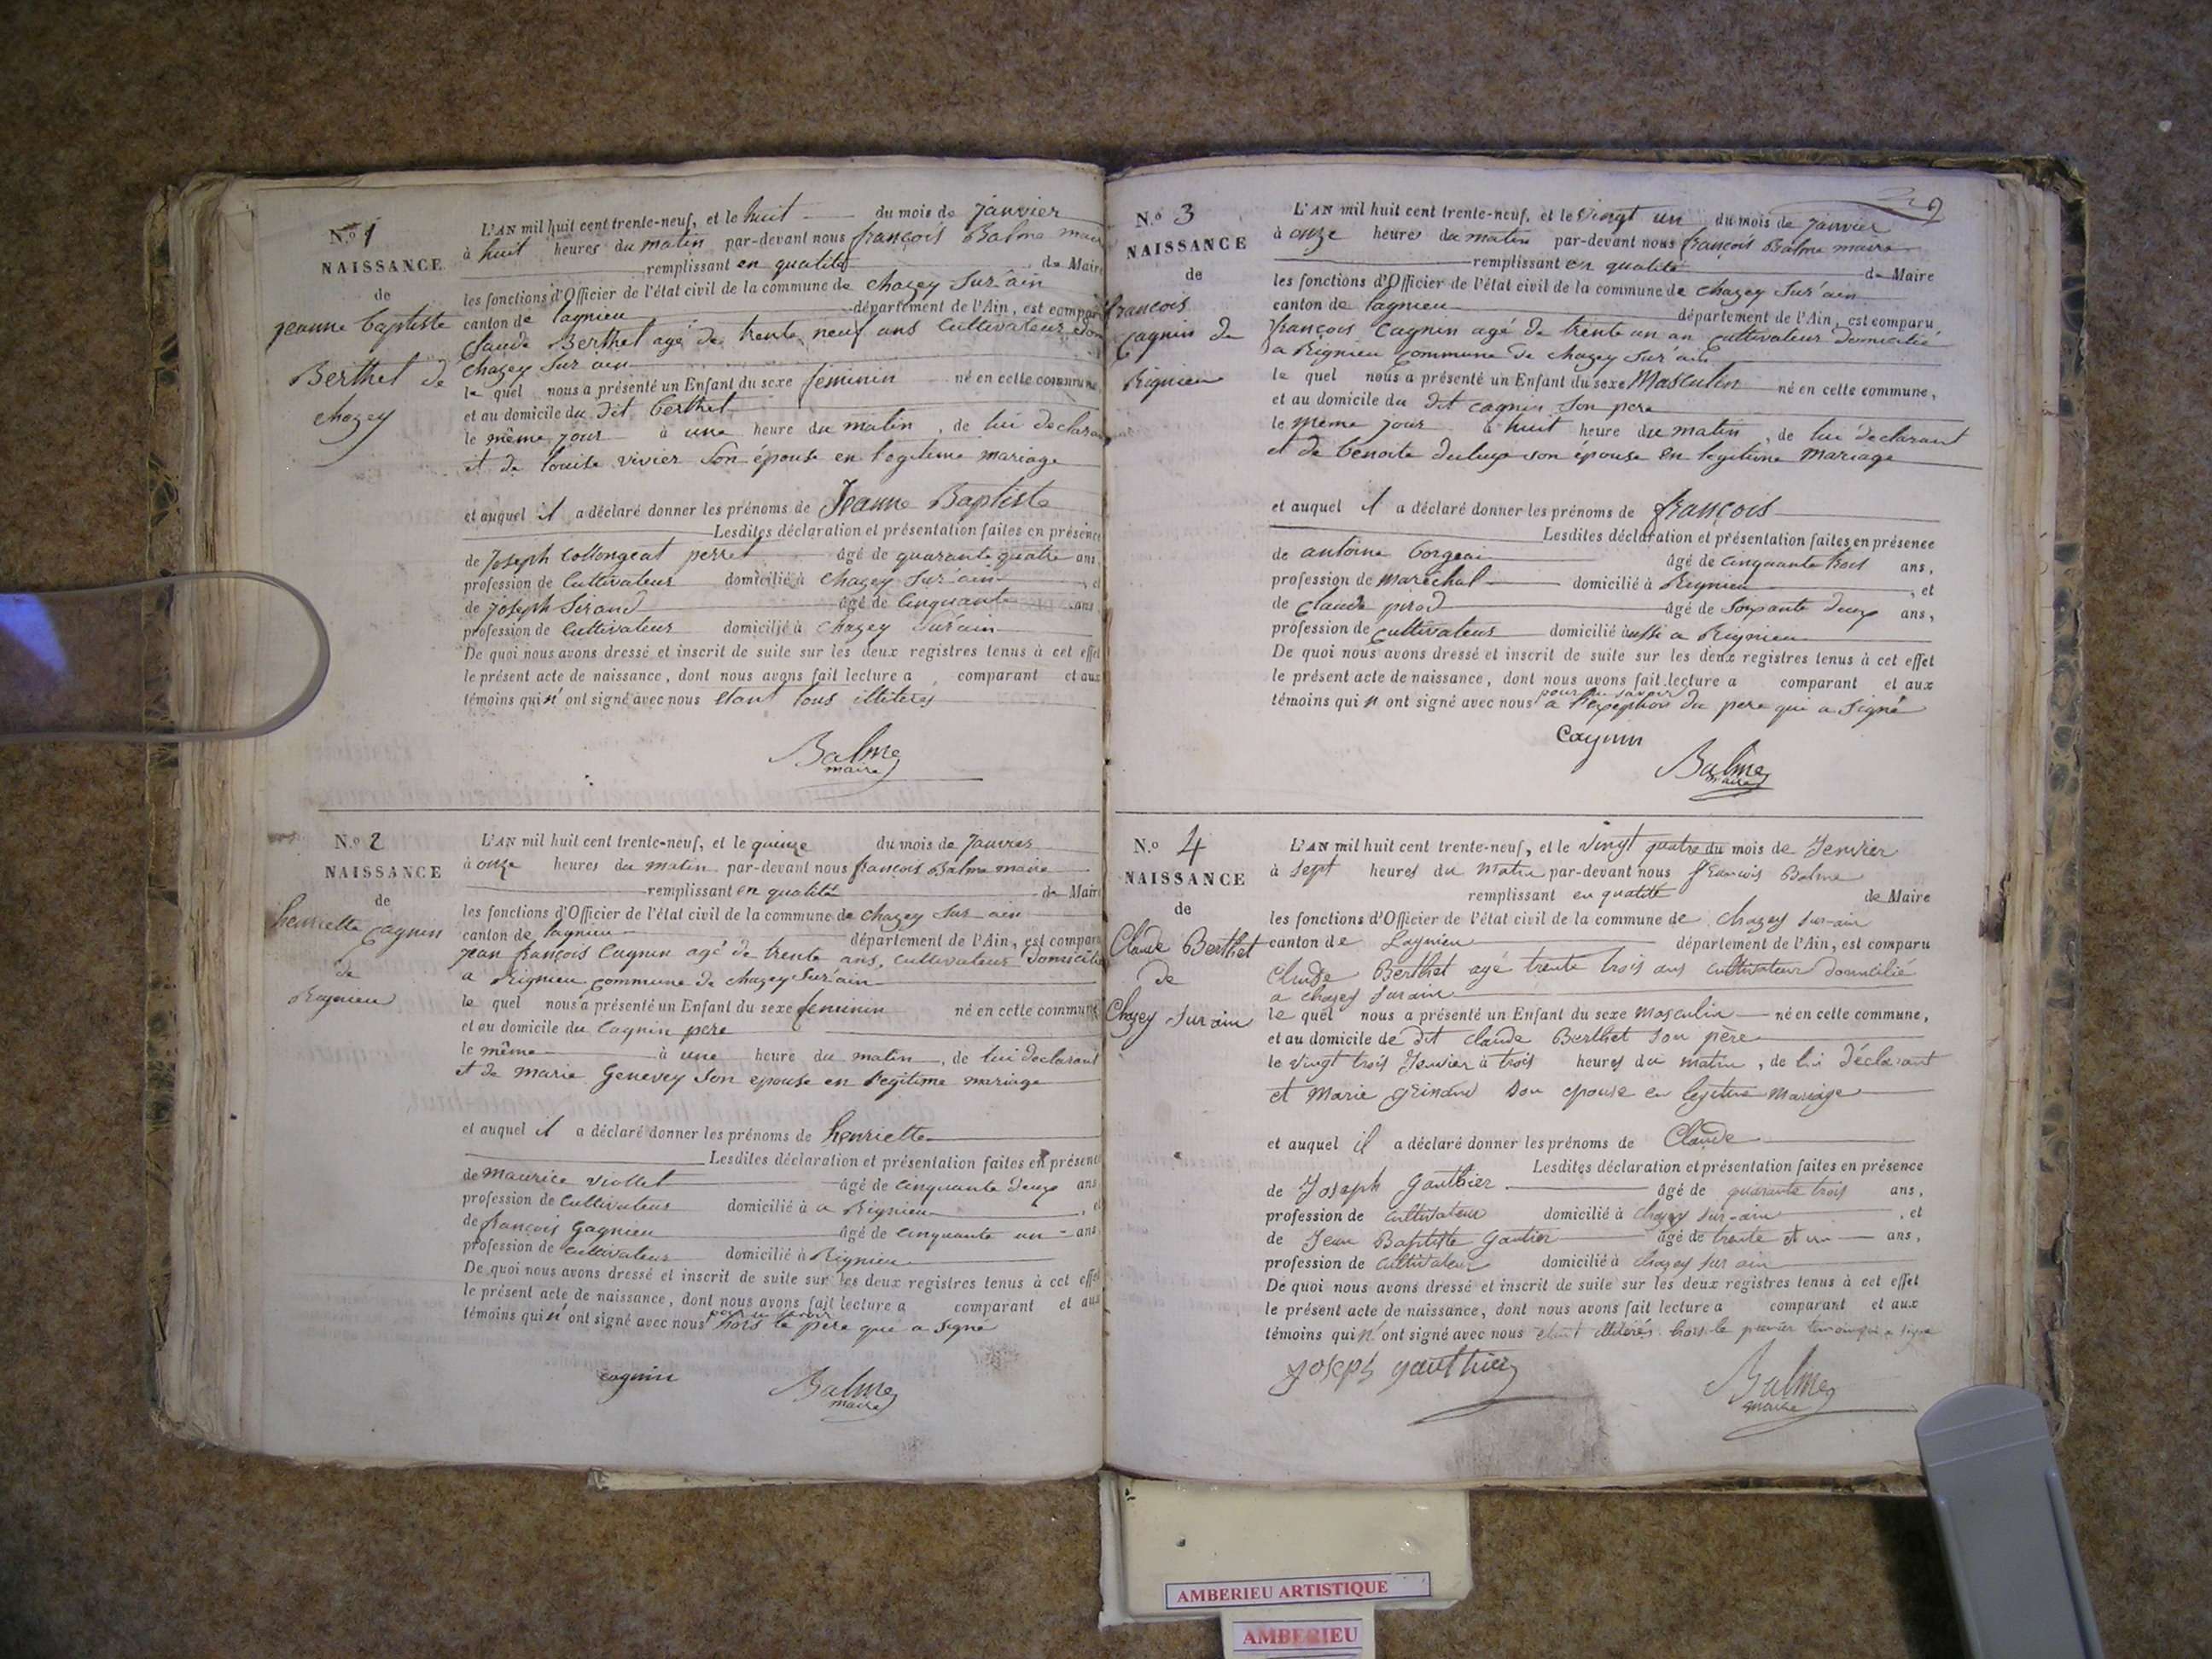 N.o 1
NAISSANCE
de
jeanne baptiste
Berthet de
chazey
L'AN mil huit cent trente-neuf, et le huit du mois de janvier
à huit heures du matin par-devant nous françois Balme maire
remplissant en qualité de Maire
les fonctions d'Officier de l'état civil de la commune de chazey sur ain
canton de lagnieu département de l'Ain, est comparu
claude Berthet agé de trente neuf ans cultivateur
chazey sur ain
le quel nous a présenté un Enfant du sexe féminin né en cette commune
et au domicile du dit berthet
le même jour à une heure du matin, de lui déclarant
et de louise vivier son épouse en légitime mariage
et auquel il a déclaré donner les prénoms de Jeanne Baptiste
Lesdites déclaration et présentation faites en présence
de joseph collongeat perret âgé de quarante quatre ans
profession de cultivateur domicilié à chazey sur ain et
de joseph Sirand âgé de cinquante ans
profession de cultivateur domicilié à chazey sur ain
De quoi nous avons dressé et inscrit de suite sur les deux registres tenus à cet effet
le présent acte de naissance, dont nous avons fait lecture a comparant et aux
témoins qui n'ont signé avec nous étant tous illitéres
Balme
maire
N.o 2
NAISSANCE
de
henriette cagnin
de
Rignieu
L'AN mil huit cent trente-neuf, et le quinze du mois de janvier
à onze heures du matin par-devant nous françois Balme maire
remplissant en qualité de Maire
les fonctions d'Officier de l'état civil de la commune de chazey sur ain
canton de lagnieu département de l'Ain, est comparu
jean françois Cagnin agé de trente ans, cultivateur domicilié
a Rignieu commune de chazey sur ain
le quel nous a présenté un Enfant du sexe feminin né en cette commune
et au domicile du cagnin pere
le même à une heure du matin, de lui déclarant
et de marie Genevey son epouse en légitime mariage
et auquel il a déclaré donner les prénoms de henriette
Lesdites déclaration et présentation faites en présence
de maurice viollet âgé de cinquante deux ans
profession de cultivateur domicilié à a Rignieu
de françois Gagnieu âgé de cinquante un ans
profession de cultivateur domicilié à Rignieu
De quoi nous avons dressé et inscrit de suite sur les deux registres tenus à cet effet
le présent acte de naissance, dont nous avons fait lecture a comparant et aux
témoins qui n'ont signé avec nous hors le père que a signé
cagnin
Balme
maire
N.o 3
NAISSANCE
de
françois
cagnin de
Rignieu
L'AN mil huit cent trente-neuf, et le vingt un du mois de janvier
à onze heures du matin par-devant nous françois Balme maire
remplissant en qualité de Maire
les fonctions d'Officier de l'état civil de la commune de chazey sur ain
canton de lagnieu département de l'Ain, est comparu
françois Cagnin agé de trente un an cultivateur domicilié
a Rignieu commune de chazey sur ain
le quel nous a présenté un Enfant du sexe Masculin né en cette commune,
et au domicile du dit cagnin son pere
le même jour à huit heure du matin, de lui déclarant
et de benoite son épouse en légitime mariage
et auquel il a déclaré donner les prénoms de françois
Lesdites déclaration et présentation faites en présence
de antoine âgé de cinquante trois ans,
profession de maréchal domicilié à Rignieu, et
de claude pirod âgé de soixante deux ans,
profession de cultivateur domicilié aussi a Rignieu
De quoi nous avons dressé et inscrit de suite sur les deux registres tenus à cet effet
le présent acte de naissance, dont nous avons fait lecture a comparant et aux
témoins qui n ont signé avec nous pour ne savoir a l'exeption du pere qui a signé
Cagnin
Balme
maire
N.o 4
NAISSANCE
de
Claude Berthet
de
Chazey sur ain
L'AN mil huit cent trente-neuf, et le vingt quatre du mois de Jenvier
à sept heures du matin par-devant nous françois Balme
remplissant en qualité de Maire
les fonctions d'Officier de l'état civil de la commune de chazey sur-ain
canton de Lagnieu département de l'Ain, est comparu
Claude Berthet agé trente trois ans cultivateur domicilié
a chazey sur ain
le quel nous a présenté un Enfant du sexe masculin né en cette commune,
et au domicile de dit claude Berthet son père
le vingt trois Jenvier à trois heures du matin, de lui déclarant
et Marie grinand son epouse en legitime mariage
et auquel il a déclaré donner les prénoms de Claude
Lesdites déclaration et présentation faites en présence
de Joseph Gauthier âgé de quarante trois ans,
profession de cultivateur domicilié à chazey sur-ain, et
de Jean Baptiste Gautier âgé de trente et un ans,
profession de cultivateur domicilié à chazey sur ain
De quoi nous avons dressé et inscrit de suite sur les deux registres tenus à cet effet
le présent acte de naissance, dont nous avons fait lecture a comparant et aux
témoins qui n'ont signé avec nous étant illitérés hors le premier temoin qui a signé
joseph gauthier
Balme
maire
AMBERIEU ARTISTIQUE
AMBERIEU